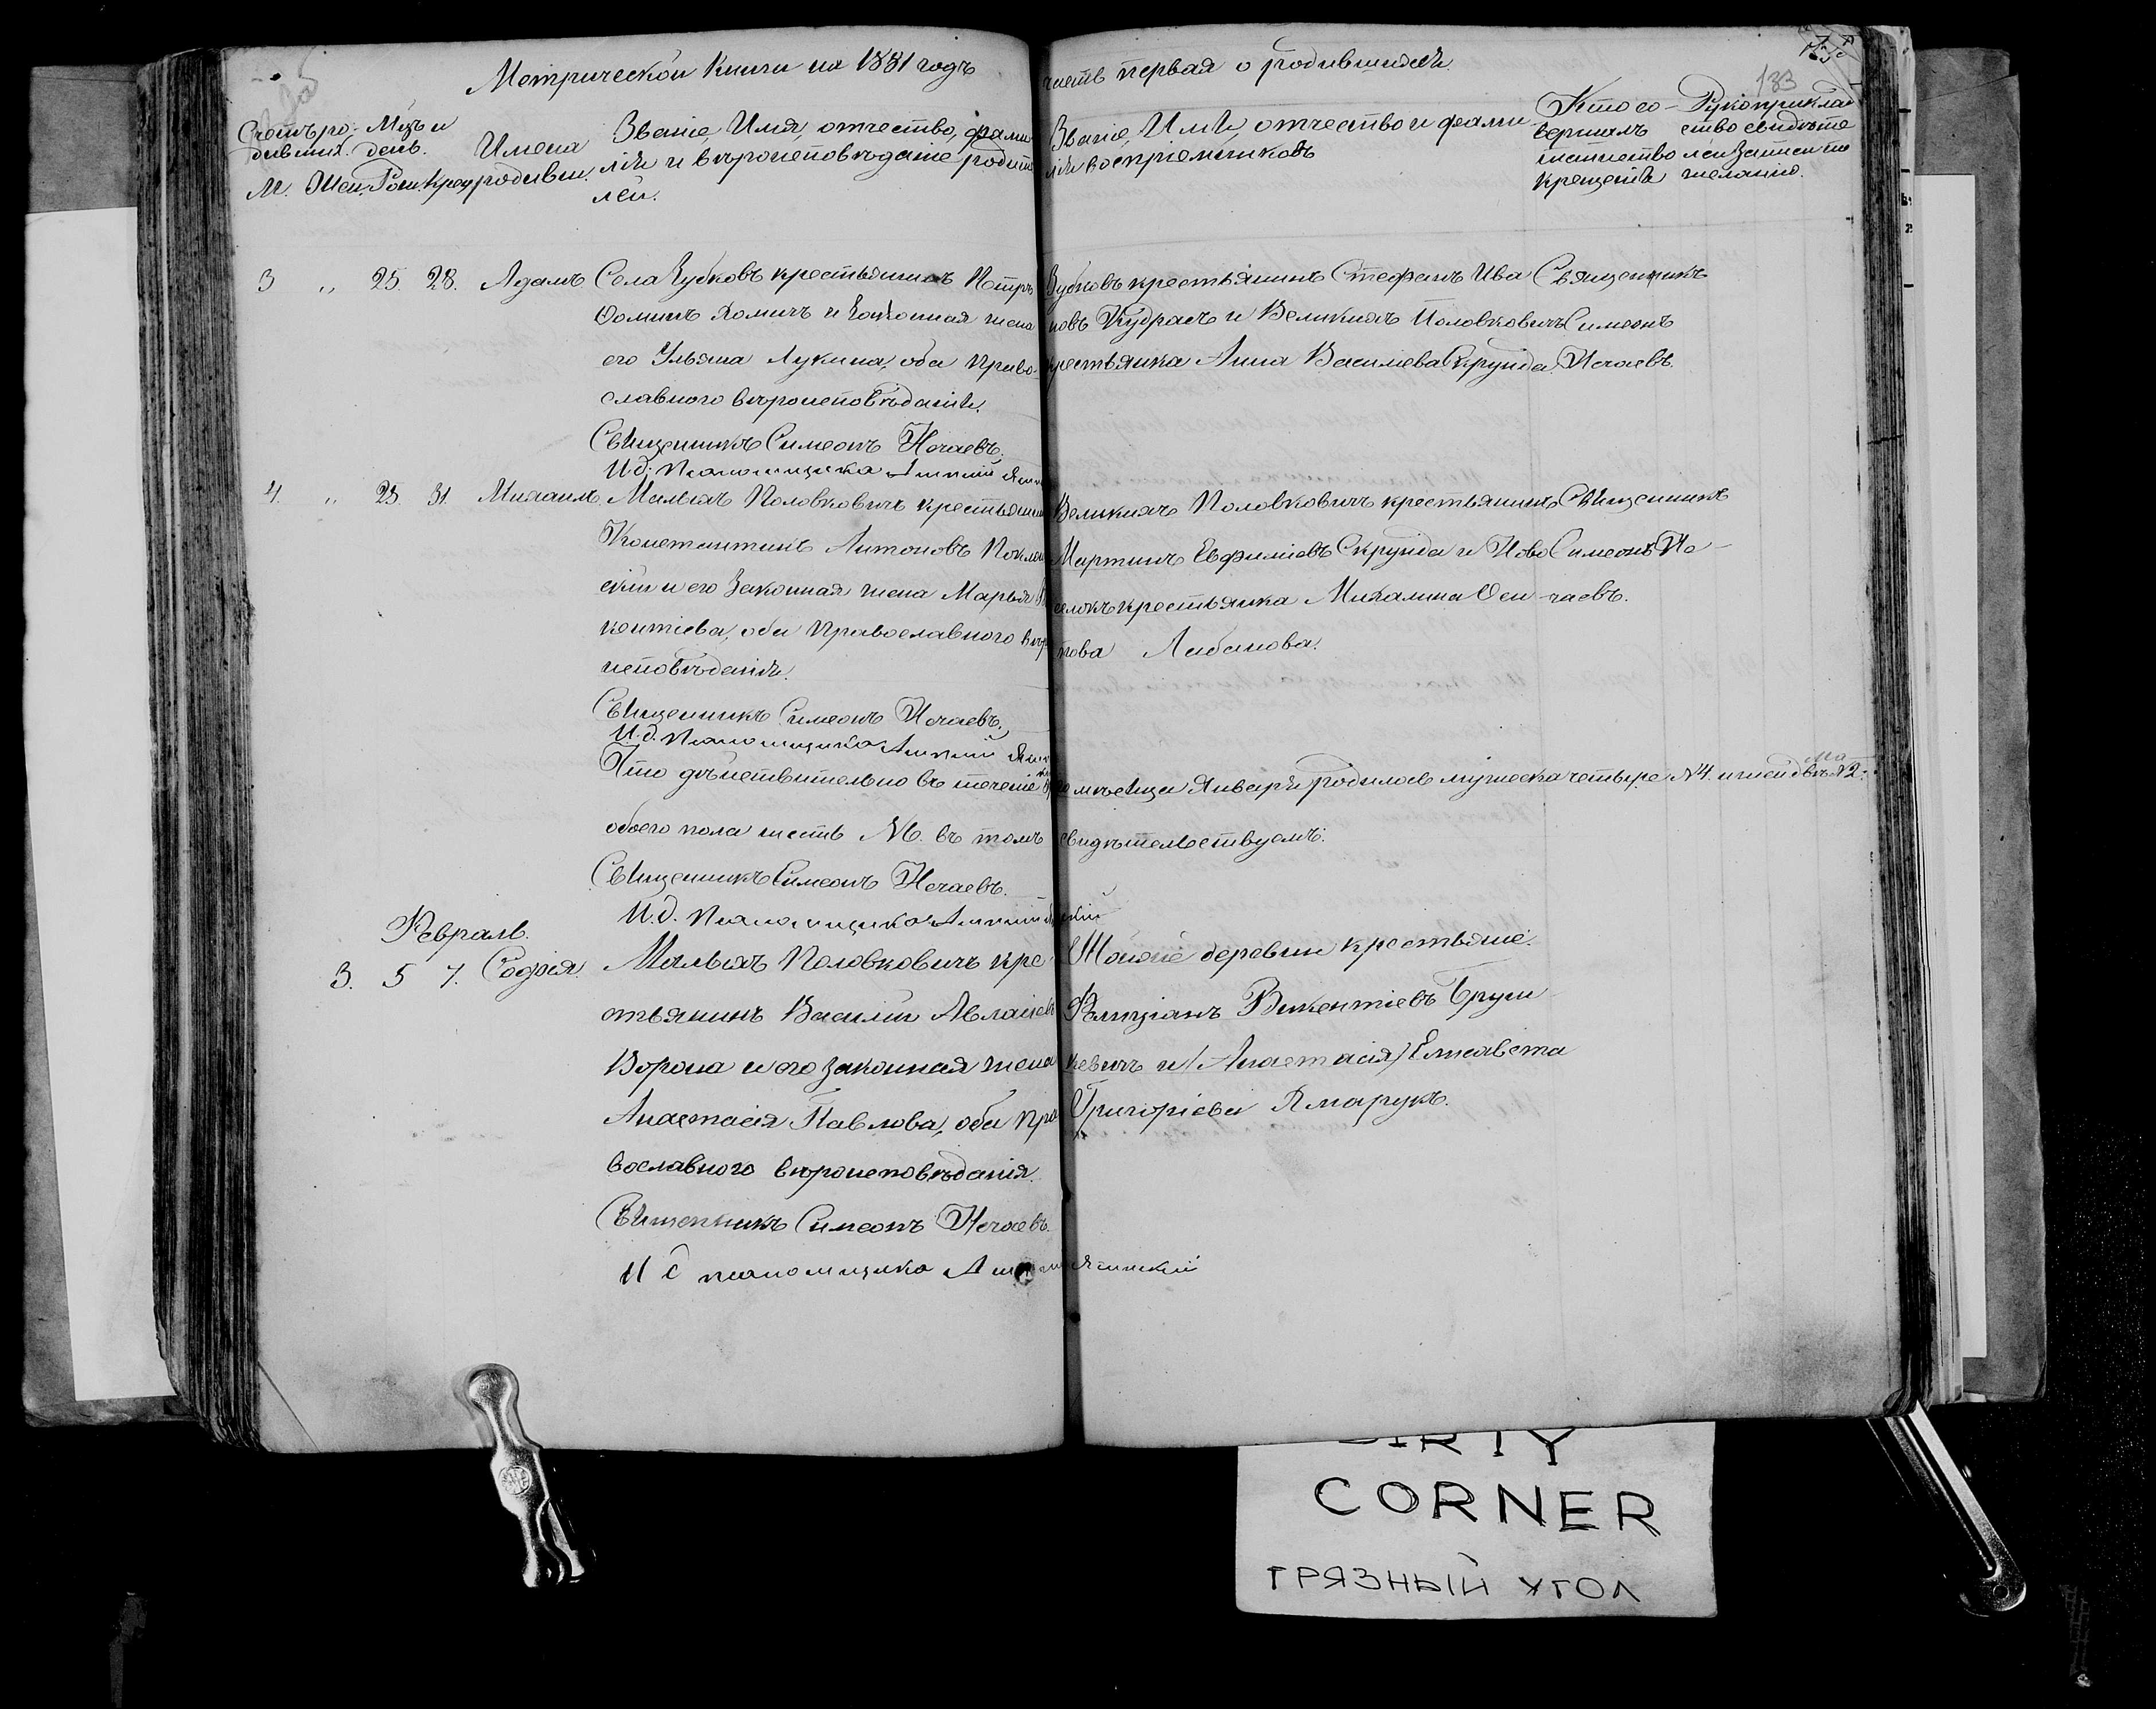 Метрической Книги на 1881 годъ
часть первая о родившихся.
133
Счетъ ро- Мцъ и
дивших. день.
М. Жен. Рож. Крещ.
Имена
родивш.
Званіе, Имя, отчество, фами
лія и вѣроисповѣданіе родите
лей.
Званіе, Имя, отчество и фами
лія воспріемниковъ
Кто со-
вершалъ
таинство
крещенія
Рукоприклад
ство свидѣте
лей записи по
желанію.
3 " 25 28. Адамъ Села Зубковъ крестьянинъ Петръ
Ѳоминъ Хомичъ и законная жена
его Ульяна Лукина, оба право-
славного вѣроисповѣданія.
Священникъ Симеонъ Нечаевъ.
И.д. Псаломщика
Зубковъ крестьянинъ Стефанъ Ива
новъ Кудрась и Великихъ Половковичъ
крестьянка Анна Василиева Скрунда.
Священникъ
Симеонъ
Нечаевъ.
4. " 23. 31. Михаилъ. Малыхъ Половковичъ крестьянин
Константинъ Антоновъ
скій и его законная жена Марья
кентіева, оба православного вѣр
исповѣданія.
Священникъ Симеонъ Нечаевъ.
И.д. Псаломщика
Великихъ Половковичъ крестьянинъ
Мартинъ Евфиміевъ Скрунда и Ново
селокъ крестьянка Михалина Оси
пова Лабанова.
Священникъ
Симеонъ Не-
чаевъ.
Что дѣйствительно въ теченіе мѣсяца Января родилось мужеска четыре №4. и жен двѣ №2.
обоего пола шесть №6. въ томъ свидѣтельствуемъ:
Священникъ Симеонъ Нечаевъ.
И.д. Псаломщика
Февраль.
3. 5 7. Софія. Малыхъ Половковичъ кре
стьянинъ Василій
Ворона и его законная жена
Анастасія Павлова, оба пра
вославного вѣроисповѣданія.
Священникъ Симеонъ Нечаевъ.
И д псаломщика
Тойже деревни крестьяне.
Фелиціанъ Викентіевъ Груш
кевичъ и (Анастасія) Елисавета
Григоріева Ямарукъ.
DIRTY
CORNER
ГРЯЗНЫЙ УГОЛ